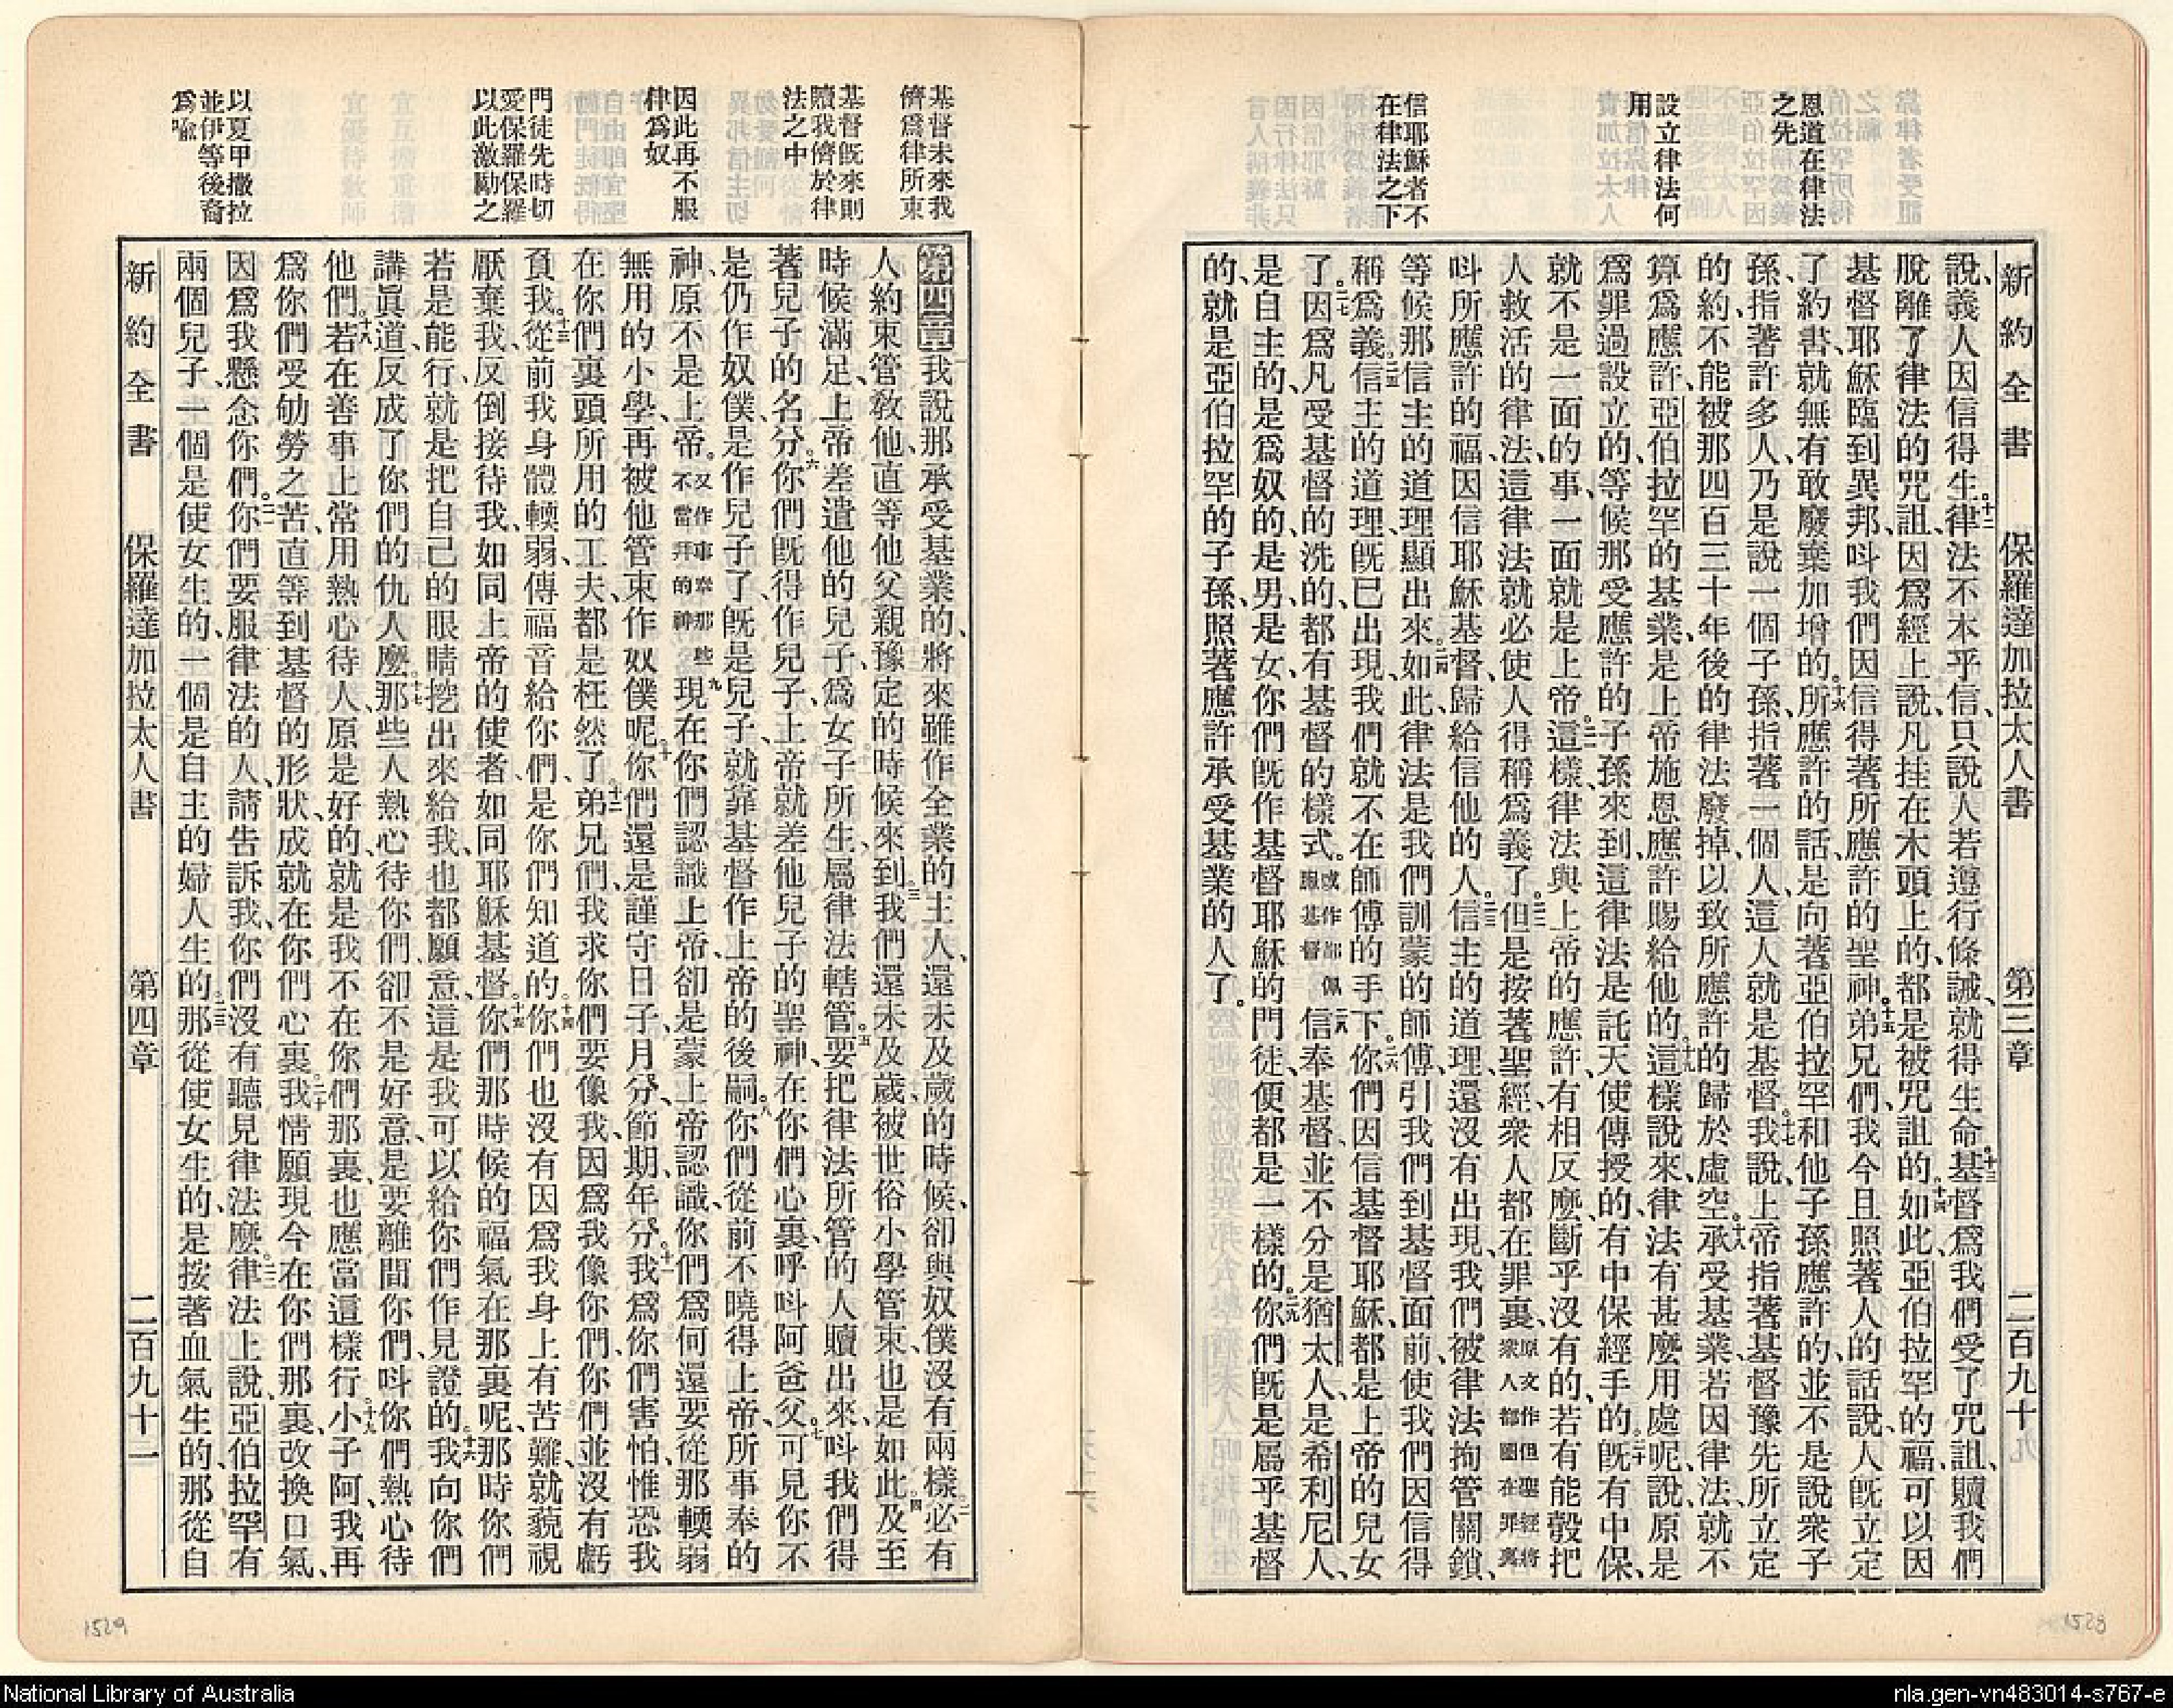 恩道在律法
之先
設立律法何
用
信耶穌者不
在律法之下
新約全書 保羅達加拉太人書 第三章 二百九十
說、義人因信得生。十二律法不本乎信、只說人若遵行條誡、就得生命。十三基督爲我們受了咒詛、贖我們
脫離了律法的咒詛、因爲經上說、凡挂在木頭上的、都是被咒詛的。十四如此、亞伯拉罕的福、可以因
基督耶穌臨到異邦、呌我們因信得著所應許的聖神。十五弟兄們、我今且照著人的話說、人旣立定
了約書、就無有敢廢棄加增的。十六所應許的話、是向著亞伯拉罕和他子孫應許的、並不是說衆子
孫、指著許多人、乃是說一個子孫、指著一個人、這人就是基督。十七我說、上帝指著基督豫先所立定
的約、不能被那四百三十年後的律法廢掉、以致所應許的歸於虛空。十八承受基業、若因律法、就不
算爲應許、亞伯拉罕的基業、是上帝施恩應許賜給他的。十九這樣說來、律法有甚麼用處呢、說、原是
爲罪過設立的、等候那受應許的子孫來到、這律法是託天使傳授的、有中保經手的。二十旣有中保、
就不是一面的事、一面就是上帝。二一這樣、律法與上帝的應許、有相反麼、斷乎沒有的、若有能彀把
人救活的律法、這律法就必使人得稱爲義了。二二但是按著聖經、衆人都在罪裏、原文作但聖經將衆人都圈在罪裏
呌所應許的福、因信耶穌基督、歸給信他的人。二三信主的道理、還沒有出現、我們被律法拘管關鎖、
等候那信主的道理顯出來。二四如此、律法是我們訓蒙的師傅、引我們到基督面前、使我們因信得
稱爲義。二五信主的道理旣已出現、我們就不在師傅的手下。二六你們因信基督耶穌、都是上帝的兒女
了。二七因爲凡受基督的洗的、都有基督的樣式。或作都佩服基督二八信奉基督、並不分是猶太人、是希利尼人、
是自主的、是爲奴的、是男、是女、你們旣作基督耶穌的門徒、便都是一樣的。二九你們旣是屬乎基督
的、就是亞伯拉罕的子孫、照著應許承受基業的人了。
基督未來我
儕爲律所束
基督旣來則
贖我儕於律
法之中
因此再不服
律爲奴
門徒先時切
愛保羅保羅
以此激勵之
以夏甲撒拉
並伊等後裔
爲喩
第四章一我說、那承受基業的、將來雖作全業的主人、還未及歲的時候、卻與奴僕沒有兩樣。二必有
人約束管敎他、直等他父親豫定的時候來到。三我們還未及歲、被世俗小學管束、也是如此。四及至
時候滿足、上帝差遣他的兒子、爲女子所生、屬律法轄管。五要把律法所管的人贖出來、呌我們得
著兒子的名分。六你們旣得作兒子、上帝就差他兒子的聖神、在你們心裏、呼呌阿爸父。七可見你不
是仍作奴僕、是作兒子了、旣是兒子、就靠基督作上帝的後嗣。八你們從前不曉得上帝、所事奉的
神、原不是上帝。又作事奉那些不當拜的神九現在你們認識上帝、卻是蒙上帝認識、你們爲何還要從那輭弱
無用的小學、再被他管束作奴僕呢。十你們還是謹守日子、月分、節期、年分。十一我爲你們害怕、惟恐我
在你們裏頭所用的工夫、都是枉然了。十二弟兄們、我求你們要像我、因爲我像你們、你們並沒有虧
負我。十三從前我身體輭弱、傳福音給你們、是你們知道的。十四你們也沒有因爲我身上有苦難、就藐視
厭棄我、反倒接待我、如同上帝的使者、如同耶穌基督。十五你們那時候的福氣在那裏呢、那時你們
若是能行、就是把自己的眼睛挖出來給我、也都願意、這是我可以給你們作見證的。十六我向你們
講眞道、反成了你們的仇人麼。十七那些人熱心待你們、卻不是好意、是要離間你們、呌你們熱心待
他們。十八若在善事上常用熱心待人、原是好的、就是我不在你們那裏、也應當這樣行。十九小子阿、我再
爲你們受劬勞之苦、直等到基督的形狀、成就在你們心裏。二十我情願現今在你們那裏、改換口氣、
因爲我懸念你們。二一你們要服律法的人、請告訴我、你們沒有聽見律法麼。二二律法上說、亞伯拉罕有
兩個兒子、一個是使女生的、一個是自主的婦人生的。二三那從使女生的、是按著血氣生的、那從自
新約全書 保羅達加拉太人書 第四章 二百九十一
1529
1528
National Library of Australia
nla.gen-vn483014-s767-e